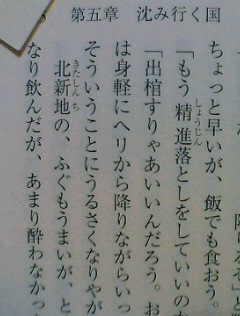 第五章　沈み行く国
ちょっと早いが、飯でも食おう。
「もう精進落としをしていいのか
「出棺すりゃあいいんだろう。お
は身軽にヘリから降りながらいっ
そういうことにうるさくなりやが
北新地の、ふぐもうまいが、と
なり飲んだが、あまり酔わなかっ